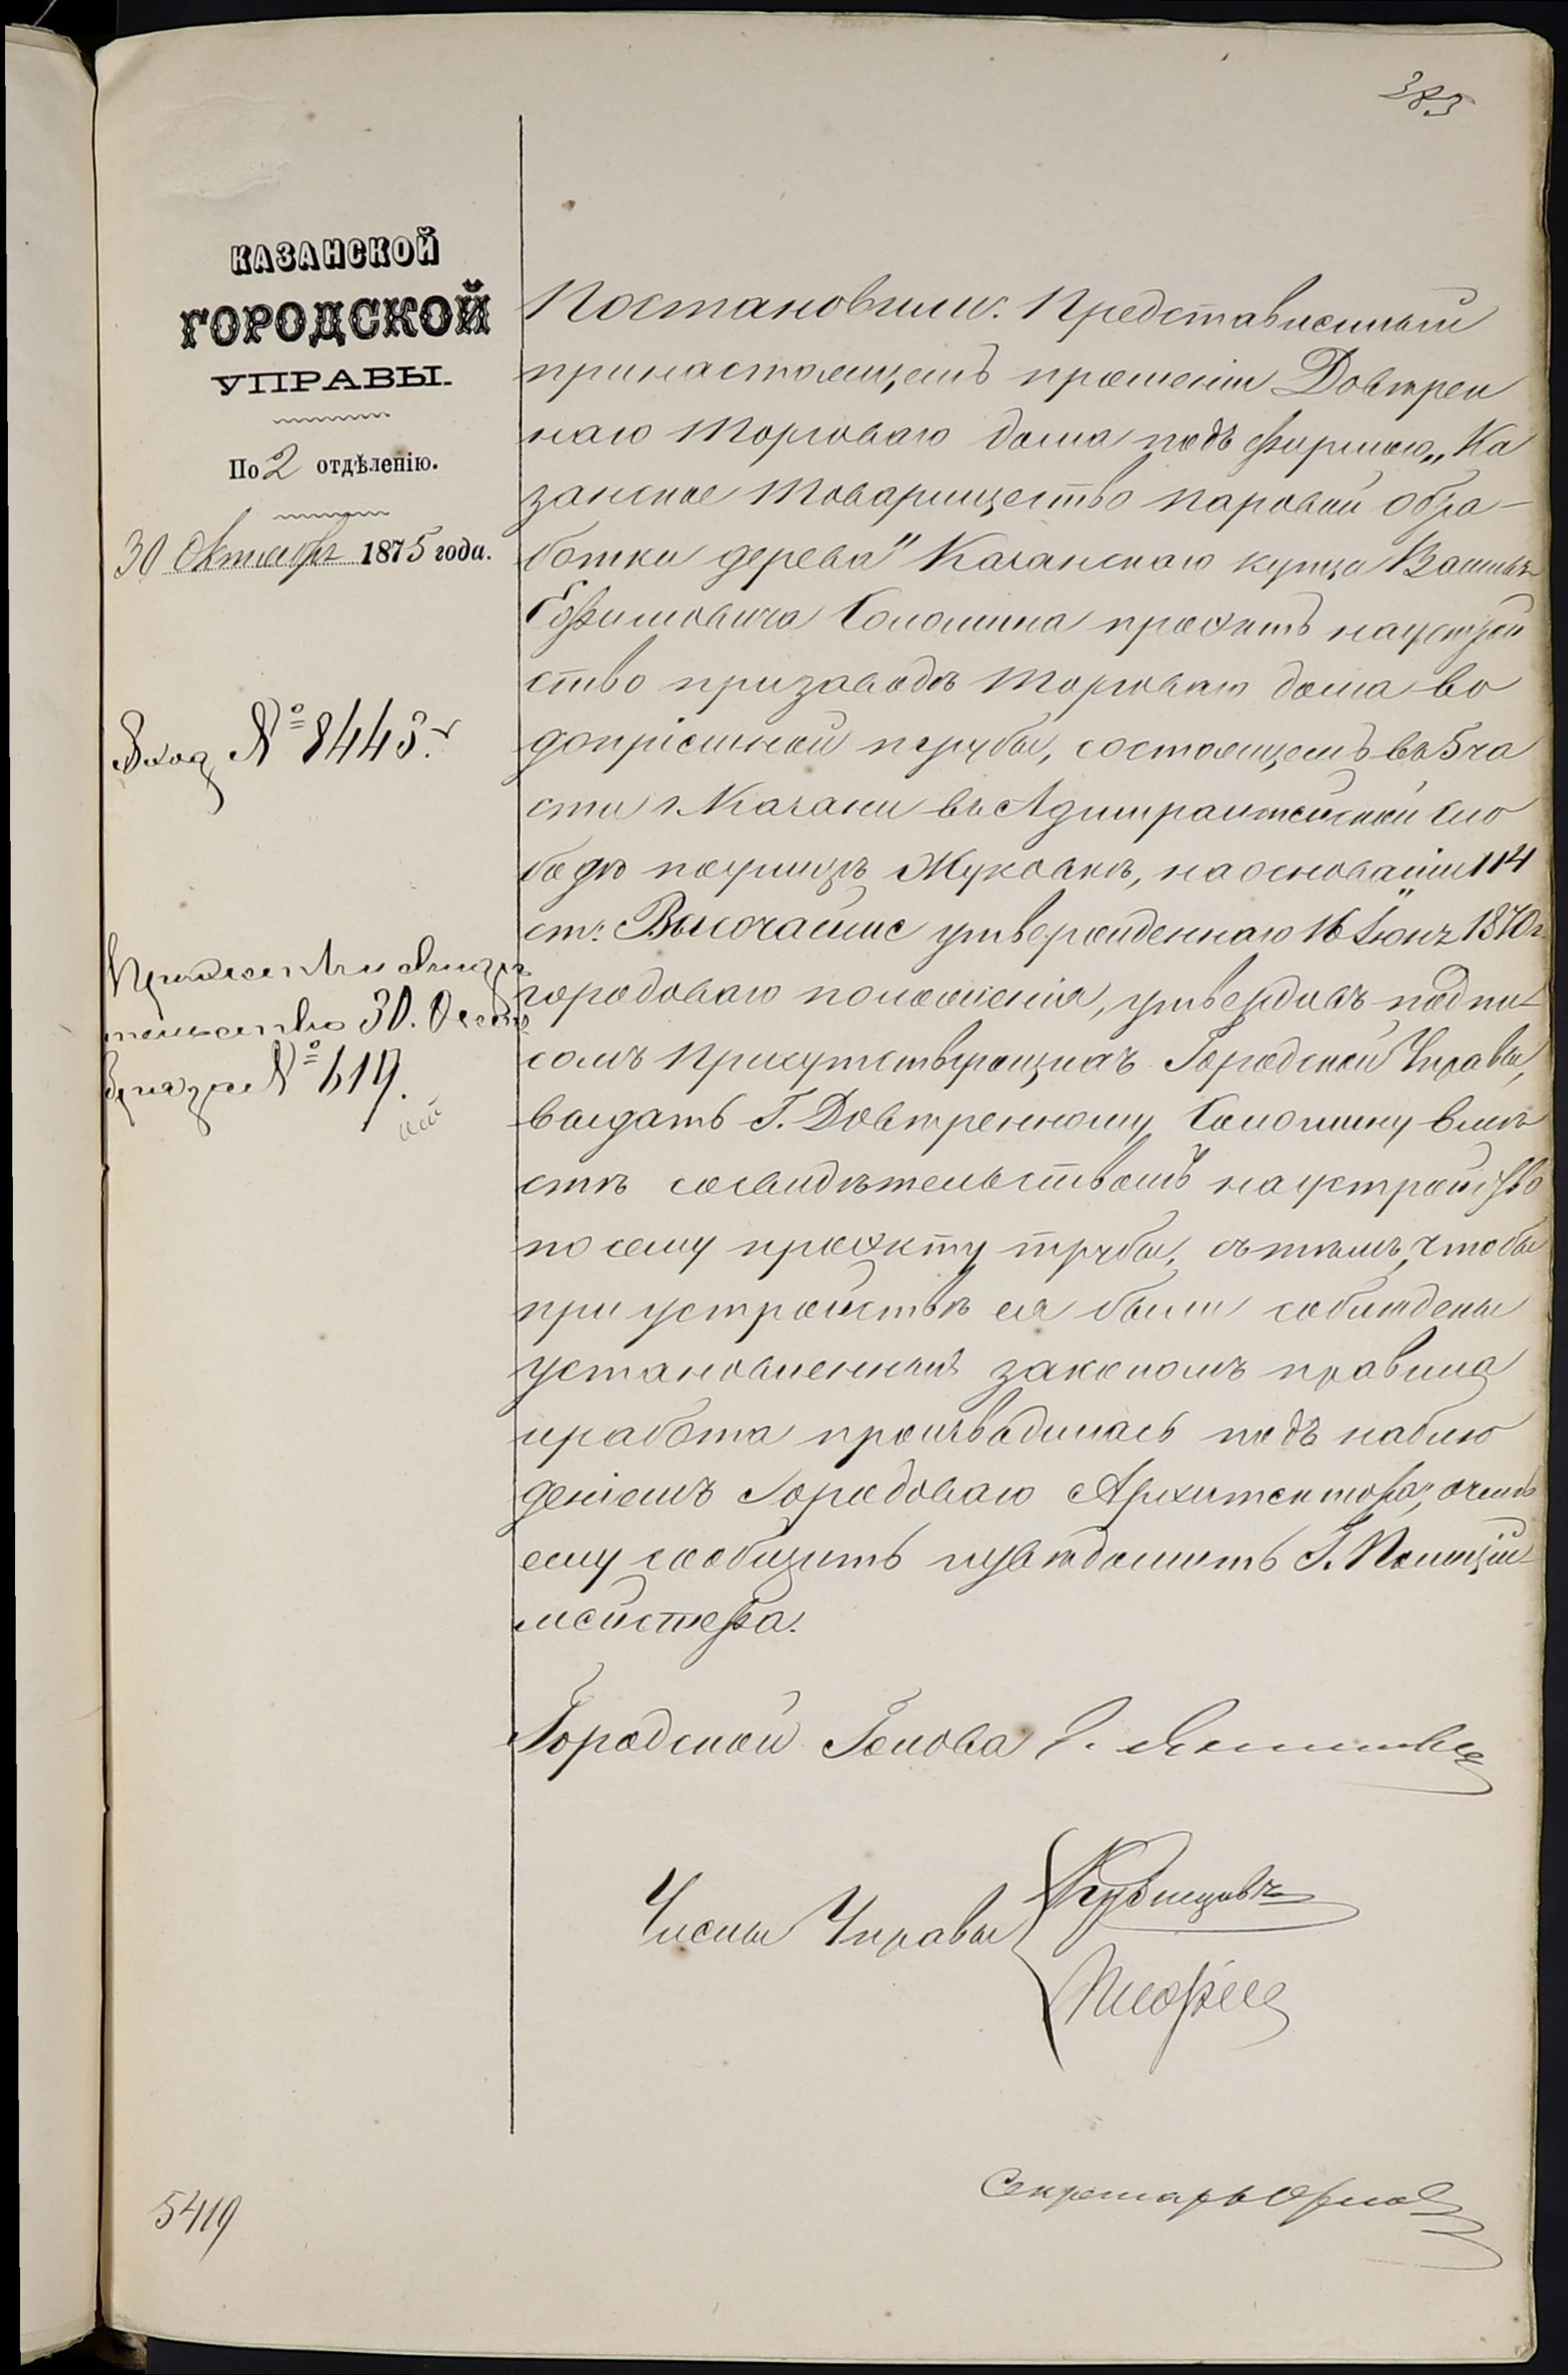 383
КАЗАНСКОЙ
ГОРОДСКОЙ
УПРАВЫ.
По 2 отдѣленію.
30 Октября 1875 года.
Вход № 8443.
30.
№ 619.
Постановили: Представленный
принастоящемъ прошеніи Довѣрен
наго Торговаго дома подъ фирмою „Ка
занское Товарищество паровой обра-
ботки дерева" Казанскаго купца
Ефимовича Соломина проэктъ наустрой
ство призаводѣ Торговаго дома во
допріемной трубы, состоящемъ въ 5 ча
сти г. Казани въ Адмиралтейской сло
бодѣ поулицѣ Жуковкѣ, на основаніи 114
ст. Высочайше утвержденнаго 16 Іюня 1870 г
городоваго положенія, утвердивъ подпи-
сомъ Присутствующихъ Городской Управы,
выдать Г. Довѣренному Соломину вмѣ
стѣ сосвидѣтельствомъ наустройство
по сему проэкту трубы, съ тѣмъ, чтобы
при устройствѣ ея были соблюдены
установленныя закономъ правила
иработа производилась подъ наблю
деніемъ Городоваго Архитектора, о чемъ
ему сообщить иувѣдомить Г. Полицій-
мейстера.
Городской Голова
Члены Управы Кузнецовъ
Секретарь Орлов
5419